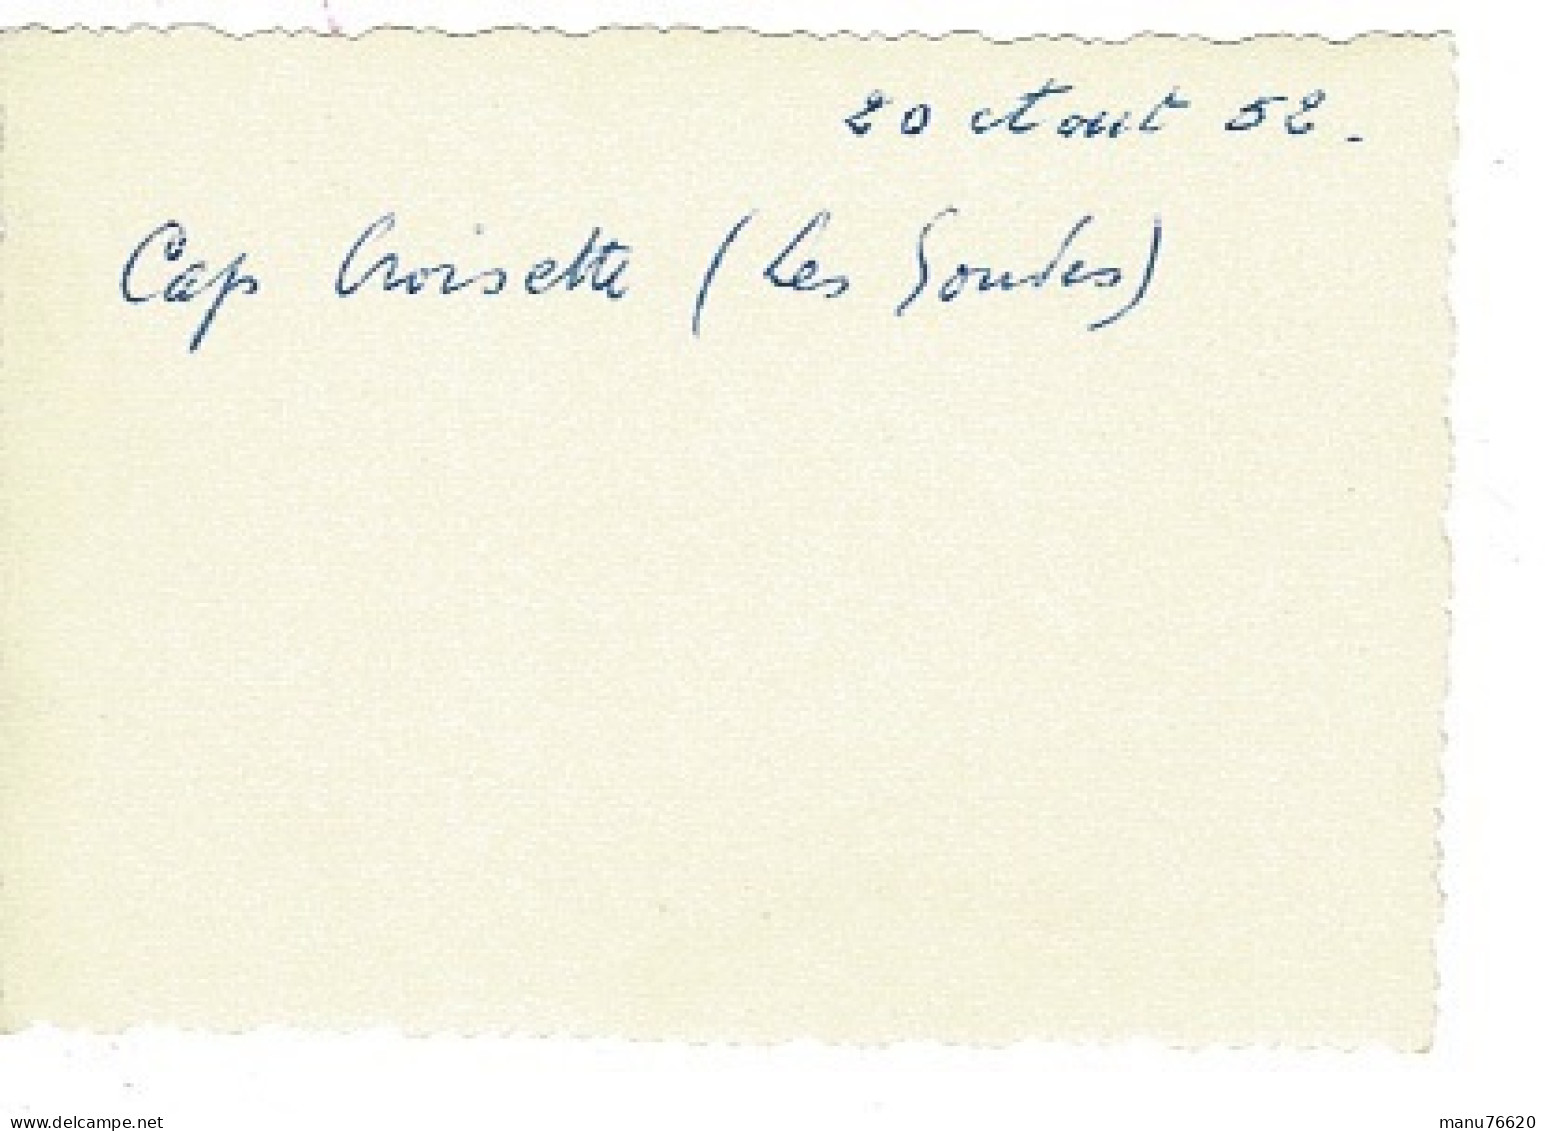 20 Aout 52.
Cap Croisette (Les Goudes)
www.delcampe.net
manu76620